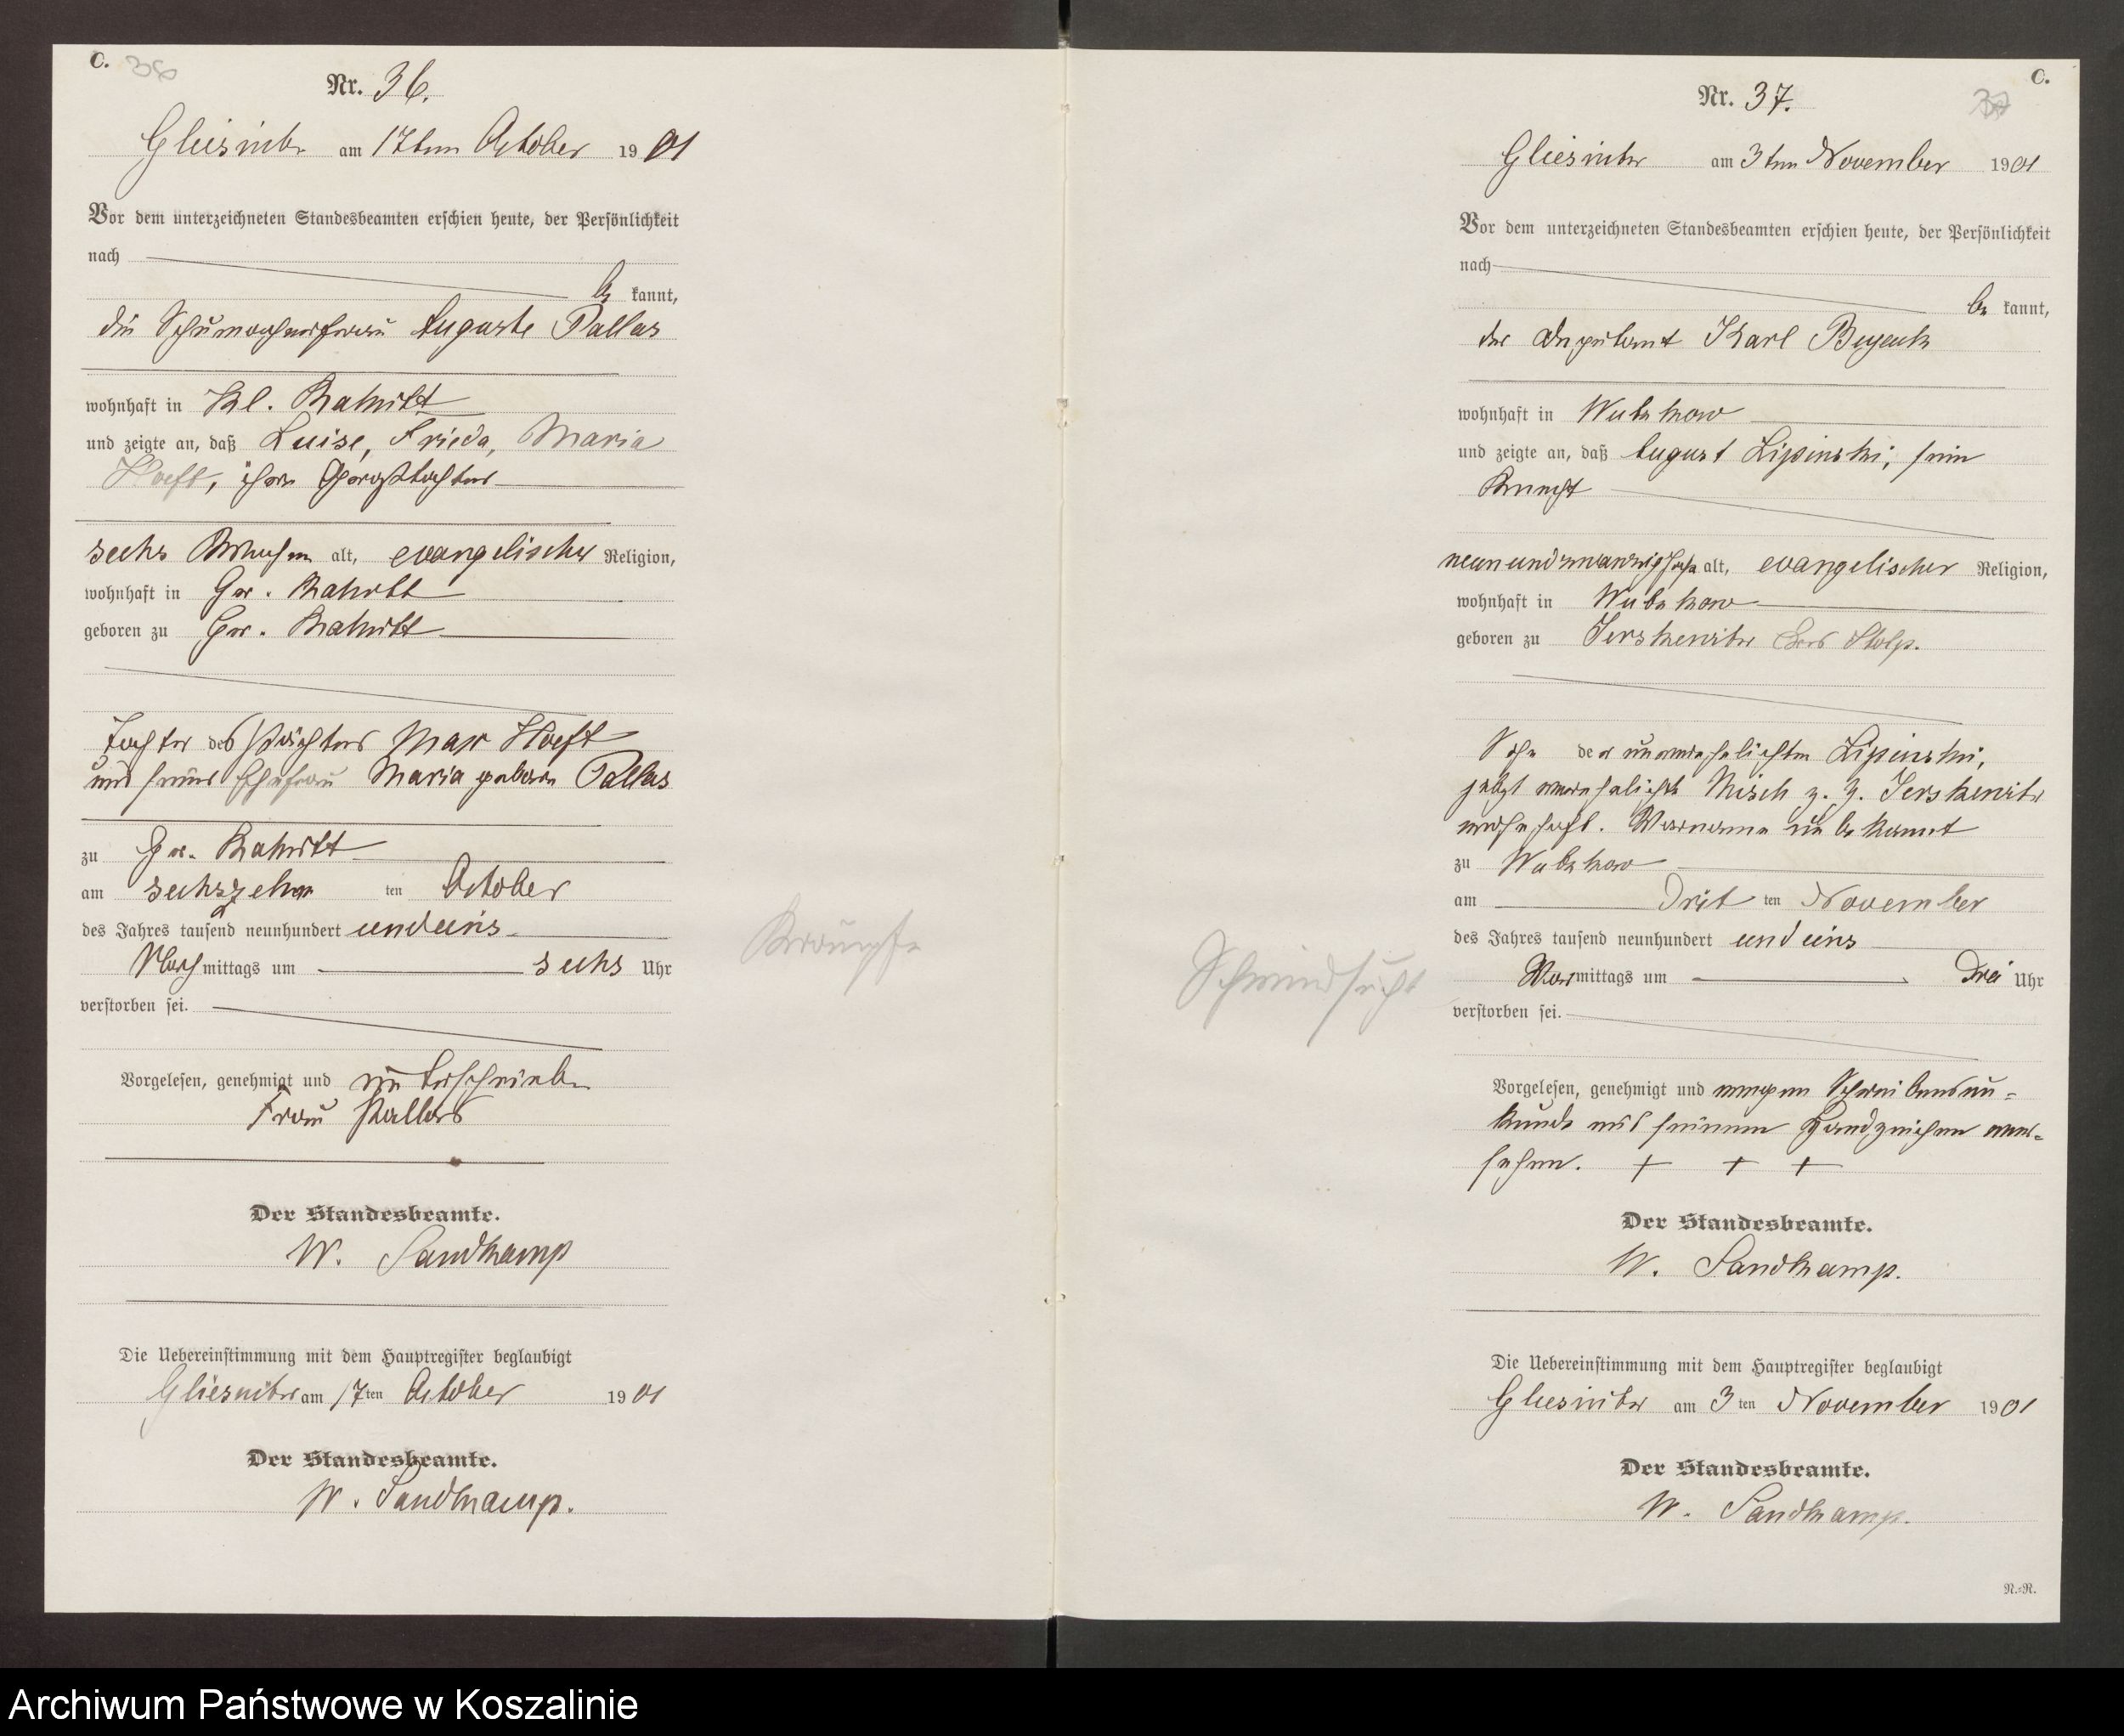 C. 36
Nr. 36.
Gliesnitz am 17ten October 1901
Vor dem unterzeichneten Standesbeamten erschien heute, der Persönlichkeit
nach
be kannt,
die Schumacherfrau Auguste Pallas
wohnhaft in Kl. Rakitt
und zeigte an, daß Luise, Frieda, Maria
Hoeft, ihre Großtochter
sechs Wochen alt, evangelischer Religion,
wohnhaft in Gr. Rakitt
geboren zu Gr. Rakitt
Tochter des Pächters Max Hoeft
und seiner Ehefrau Maria geborne Pallas
zu Gr. Rakitt
am sechszehn ten October
des Jahres tausend neunhundert undeins
Nachmittags um sechs Uhr
verstorben sei.
Krämpfe
Vorgelesen, genehmigt und unterschrieben
Frau Pallas
Der Standesbeamte.
W. Sandkamp
Die Uebereinstimmung mit dem Hauptregister beglaubigt
Gliesnitz am 17ten October 1901
Der Standesbeamte.
W. Sandkamp.
C.
Nr. 37. 37
Gliesnitz am 3ten November 1901
Vor dem unterzeichneten Standesbeamten erschien heute, der Persönlichkeit
nach
be kannt,
der Deputant Karl
wohnhaft in Wutzkow
und zeigte an, daß August Lipinski, sein
Knecht
neunundzwanzig Jahre alt, evangelischer Religion,
wohnhaft in Wutzkow
geboren zu Jerskewitz Kreis Stolp.
Sohn der unverehelichten Lipinski,
jetzt verehelichte Misch z. Z. Jerskewitz
wohnhaft. Vorname unbekannt
zu Wutzkow
am Drit ten November
des Jahres tausend neunhundert und eins
Vormittags um Drei Uhr
verstorben sei.
Schwindsucht
Vorgelesen, genehmigt und wegen Schreibensun-
kunde mit seinem Handzeichen ver-
sehen. + + +
Der Standesbeamte.
W. Sandkamp.
Die Uebereinstimmung mit dem Hauptregister beglaubigt
Gliesnitz am 3ten November 1901
Der Standesbeamte.
W. Sandkamp.
N.=N.
Archiwum Państwowe w Koszalinie